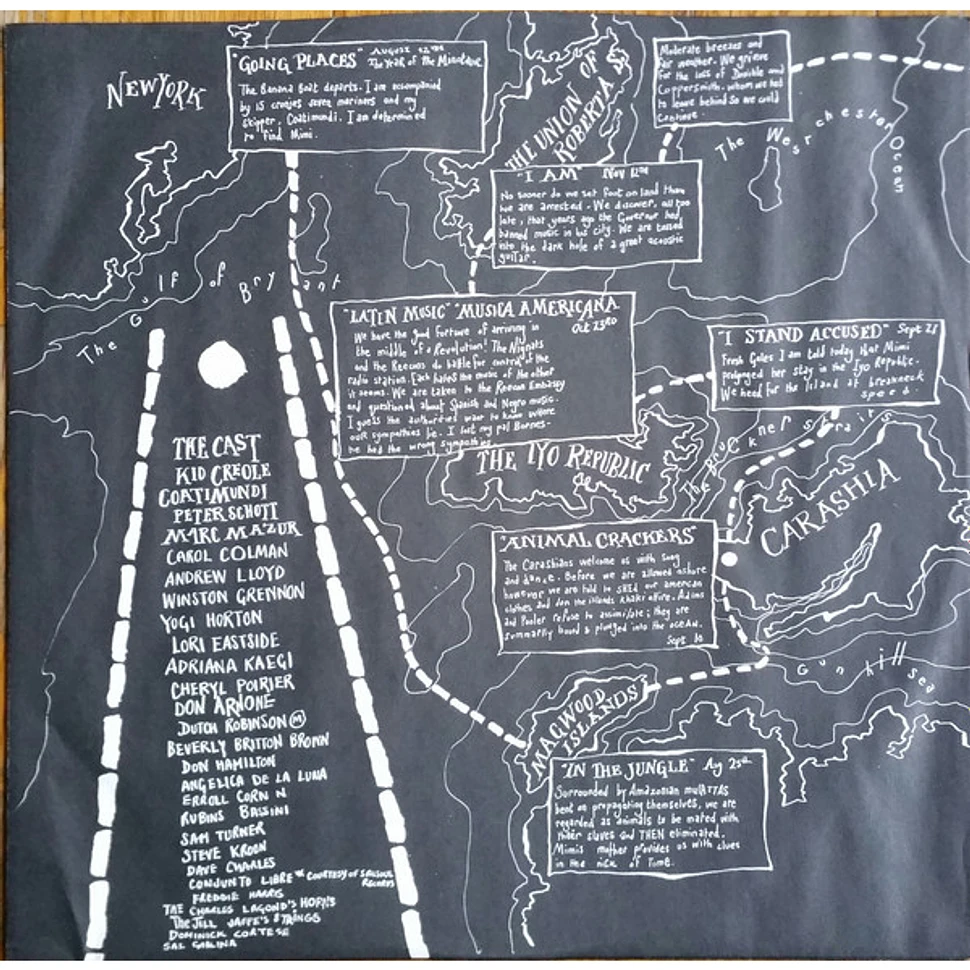 NEW YORK
"GOING PLACES" AUGUST 12TH
The Year of the Minotaur
The Banana Boat departs. I am accompanied
by 15 cronies seven mariners and my
skipper, Coatimundi. I am determined
to find Mimi.
THE UNION OF
ROBERTA
Moderate breezes and
fair weather. We grieve
for the loss of and
Coppersmith. whom we had
to leave behind so we could
continue.
The Westchester Ocean
"I AM" Nov 12TH
No sooner do we set foot on land than
we are arrested. We discover, all too
late, that years ago the Governor had
banned music in his city. We are tossed
into the dark hole of a great acoustic
guitar.
The Gulf of Bryant
"LATIN MUSIC" "MUSICA AMERICANA
Oct 23RD
We have the good fortune of arriving in
the middle of a Revolution! The Nignats
and the Reecons do battle for control of the
radio station. Each hates the music of the other
it seems. We are taken to the Reecon Embassy
and questioned about Spanish and Negro music.
I guess the authorities want to know where
our sympathies lie. I lost my pal Barnes-
he had the wrong sympathies.
"I STAND ACCUSED" Sept 21
Fresh Gales I am told today that Mimi
prolonged her stay in the Iyo Republic.
We head for the island at breakneck
speed
The Bruckner Straits
THE IYO REPUBLIC
CARASHIA
THE CAST
KID CREOLE
COATIMUNDI
PETER SCHOTT
MARC MAZUR
CAROL COLMAN
ANDREW LLOYD
WINSTON GRENNON
YOGI HORTON
LORI EASTSIDE
ADRIANA KAEGI
CHERYL POIRIER
DON ARNONE
DUTCH ROBINSON M
BEVERLY BRITTON BROWN
DON HAMILTON
ANGELICA DE LA LUNA
ERROLL CORN N
RUBINS BASSINI
SAM TURNER
STEVE KROON
DAVE CHARLES
CONJUNTO LIBRE * COURTESY OF SALSOUL
RECORDS
FREDDIE HARRIS
THE CHARLES LAGOND'S HORNS
THE JILL JAFFE'S STRINGS
DOMINICK CORTESE
SAL GABLINA
"ANIMAL CRACKERS"
The Carashians welcome us with song
and dance. Before we are allowed ashore
however we are told to SHED our american
clothes and don the islands khaki attire. Adams
and Pooler refuse to assimilate; they are
summarily bound & plunged into the OCEAN.
Sept 10
Gun hill sea
MACWOOD
ISLANDS
"IN THE JUNGLE" Aug 25th
Surrounded by Amazonian mulATTAS
bent on propagating themselves, we are
regarded as animals to be mated with
their slaves and THEN eliminated.
Mimis mother provides us with clues
in the nick of Time.